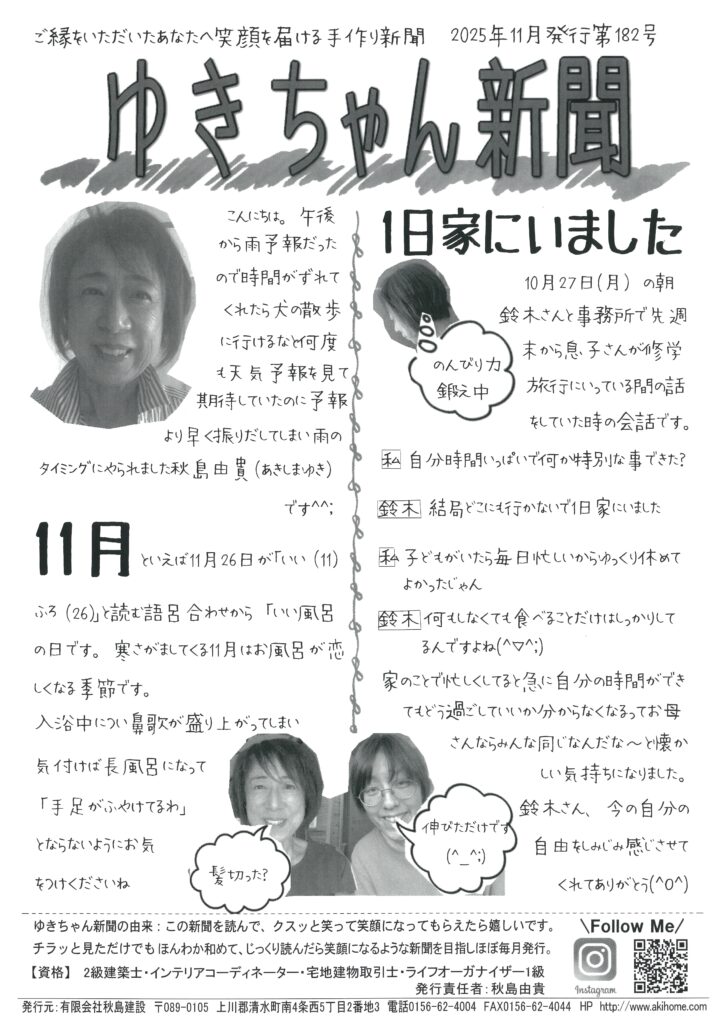 ご縁をいただいたあなたへ笑顔を届ける手作り新聞 2025年11月発行第182号
ゆきちゃん新聞
こんにちは。午後
から雨予報だった
ので時間がずれて
くれたら犬の散歩
に行けるなと何度
も天気予報を見て
期待していたのに予報
より早く振りだしてしまい雨の
タイミングにやられました秋島由貴(あきしまゆき)
です^^;
11月といえば11月26日が「いい(11)
ふろ(26)」と読む語呂合わせから「いい風呂
の日です。寒さがましてくる11月はお風呂が恋
しくなる季節です。
入浴中につい鼻歌が盛り上がってしまい
気付けば長風呂になって
「手足がふやけてるわ」
とならないようにお気
をつけくださいね
髪切った?
伸びただけです
(^_^;)
1日家にいました
10月27日(月)の朝
鈴木さんと事務所で先週
末から息子さんが修学
旅行にいっている間の話
をしていた時の会話です。
のんびり力
鍛え中
私 自分時間いっぱいで何か特別な事できた?
鈴木 結局どこにも行かないで1日家にいました
私 子どもがいたら毎日忙しいからゆっくり休めて
よかったじゃん
鈴木 何もしなくても食べることだけはしっかりして
るんですよね(^▽^;)
家のことで忙しくしてると急に自分の時間ができ
てもどう過ごしていいか分からなくなるってお母
さんならみんな同じなんだな〜と懐か
しい気持ちになりました。
鈴木さん、今の自分の
自由をしみじみ感じさせて
くれてありがとう(^O^)
ゆきちゃん新聞の由来：この新聞を読んで、クスッと笑って笑顔になってもらえたら嬉しいです。
チラッと見ただけでもほんわか和めて、じっくり読んだら笑顔になるような新聞を目指しほぼ毎月発行。
【資格】 2級建築士・インテリアコーディネーター・宅地建物取引士・ライフオーガナイザー1級
発行責任者：秋島由貴
\Follow Me/
Instagram
発行元：有限会社秋島建設 〒089-0105 上川郡清水町南4条西5丁目2番地3 電話0156-62-4004 FAX0156-62-4044 HP http://www.akihome.com